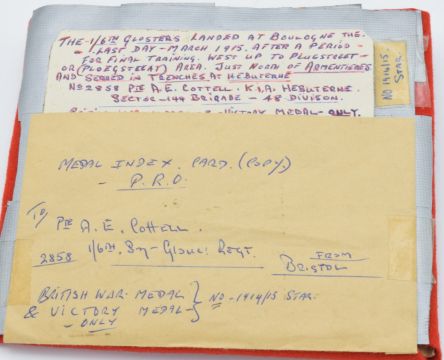 THE 1/6TH GLOSTERS LANDED AT BOULOGNE THE
- LAST DAY - MARCH 1915. AFTER A PERIOD -
FOR FINAL TRAINING. WENT UP TO PLUGSTREET -
OR (PLOEGSTEEAT) AREA. JUST NORTH OF ARMENTIERES
AND SERVED IN TRENCHES AT HEBUTERNE
No 2858 PTE A.E. COTTELL. K.I.A. HEBUTERNE.
SECTOR - 144 BRIGADE - 48 DIVISON.
VICTORY MEDAL - ONLY.
NO 1914/15.
STAR
MEDAL INDEX. CARD. (COPY)
- P.R.O.
TO/
PTE A. E. COTTELL.
2858 1/6TH. BN - GLOUC: REGT.
FROM
BRISTOL
BRITISH WAR MEDAL } NO - 1914/15 STAR.
& VICTORY MEDAL -
- ONLY